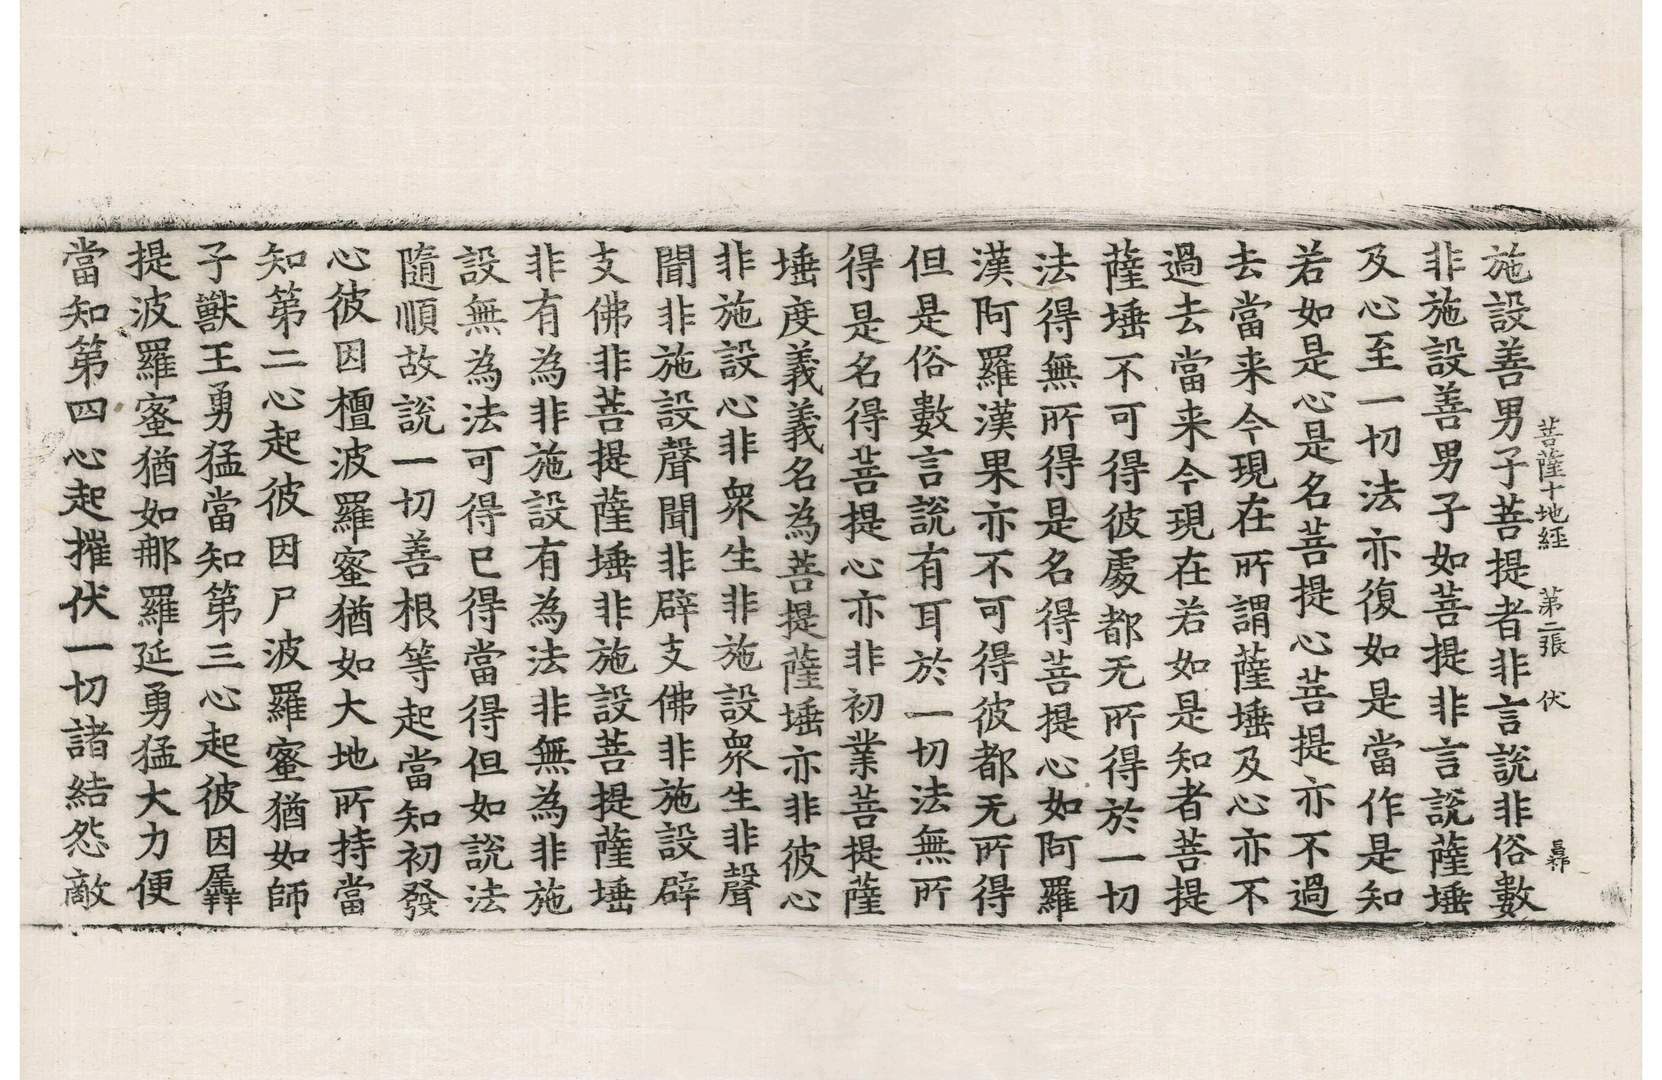 菩薩十地經 第二張 伏
施設善男子菩提者非言說非俗數
非施設善男子如菩提非言說薩埵
及心至一切法亦復如是當作是知
若如是心是名菩提心菩提亦不過
去當来今現在所謂薩埵及心亦不
過去當来今現在若如是知者菩提
薩埵不可得彼處都无所得於一切
法得無所得是名得菩提心如阿羅
漢阿羅漢果亦不可得彼都无所得
但是俗數言說有耳於一切法無所
得是名得菩提心亦非初業菩提薩
埵度義義名為菩提薩埵亦非彼心
非施設心非眾生非施設眾生非聲
聞非施設聲聞非辟支佛非施設辟
支佛非菩提薩埵非施設菩提薩埵
非有為非施設有為法非無為非施
設無為法可得已得當得但如說法
隨順故說一切善根等起當知初發
心彼因檀波羅蜜猶如大地所持當
知第二心起彼因尸波羅蜜猶如師
子獸王勇猛當知第三心起彼因羼
提波羅蜜猶如那羅延勇猛大力便
當知第四心起摧伏一切諸結怨敵